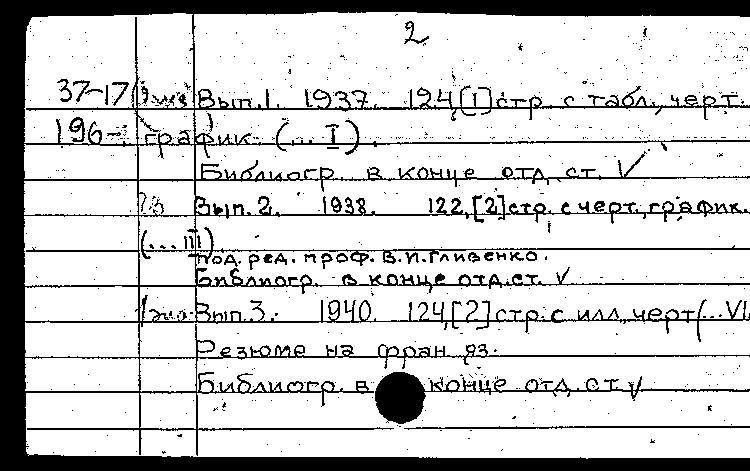 2
37-17 Вып.1. 1937. 124,[1]стр. с табл., черт.
196- график. (... I).
Библиогр. в конце отд. ст. V
Вып.2. 1938. 122,[2]стр. с черт., график.
(... III)
под. ред. проф. В.И.Гливенко.
Библиогр. в конце отд.ст. V
1 экз. Вып.3. 1940. 124,[2]стр. с илл, черт(...VI
Резюме на фран яз.
Библиогр. в конце отд. ст. V